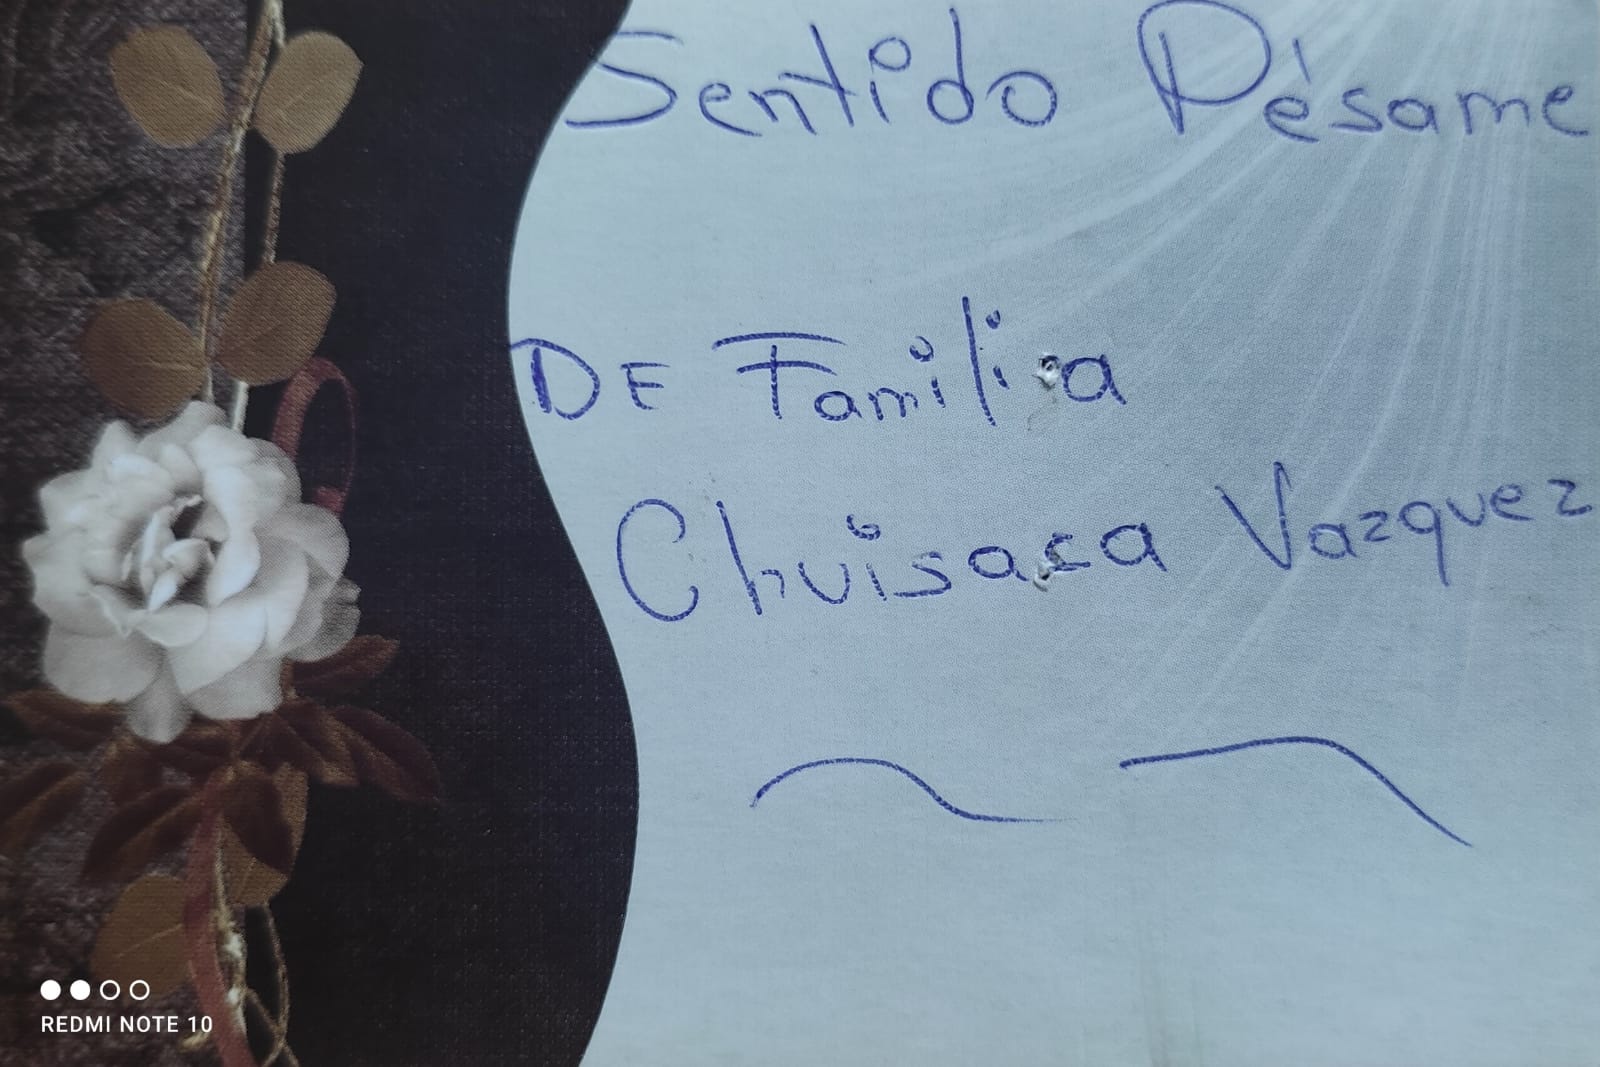 Sentido Pésame
DE Familia
Chuisaca Vazquez
REDMI NOTE 10